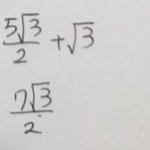 5√3/2 + √3
7√3/2